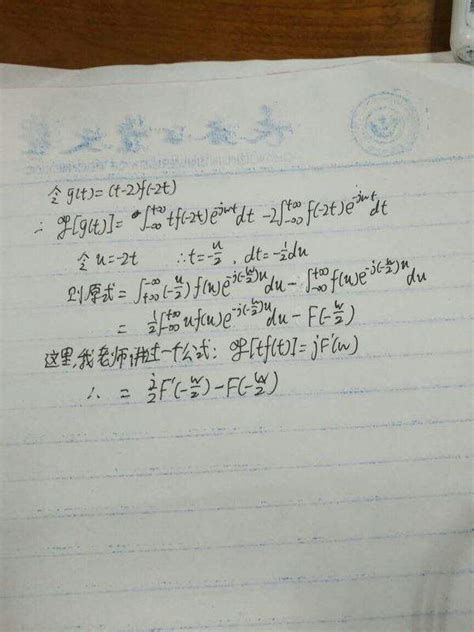 令 g(t)=(t-2)f(-2t)
∴ ℱ[g(t)]=∫_{-∞}^{+∞} tf(-2t)e^{-jwt}dt -2∫_{-∞}^{+∞} f(-2t)e^{-jwt}dt
令 u=-2t ∴t=-u/2 , dt=-1/2du
则原式=∫_{+∞}^{-∞}(-u/2)f(u)e^{-j(-w/2)u}du-∫_{-∞}^{+∞}f(u)e^{-j(-w/2)u}du
=1/2∫_{-∞}^{+∞}uf(u)e^{-j(-w/2)u}du-F(-w/2)
这里,我老师讲过一个公式: ℱ[tf(t)]=jF'(w)
∴ =j/2F'(-w/2)-F(-w/2)